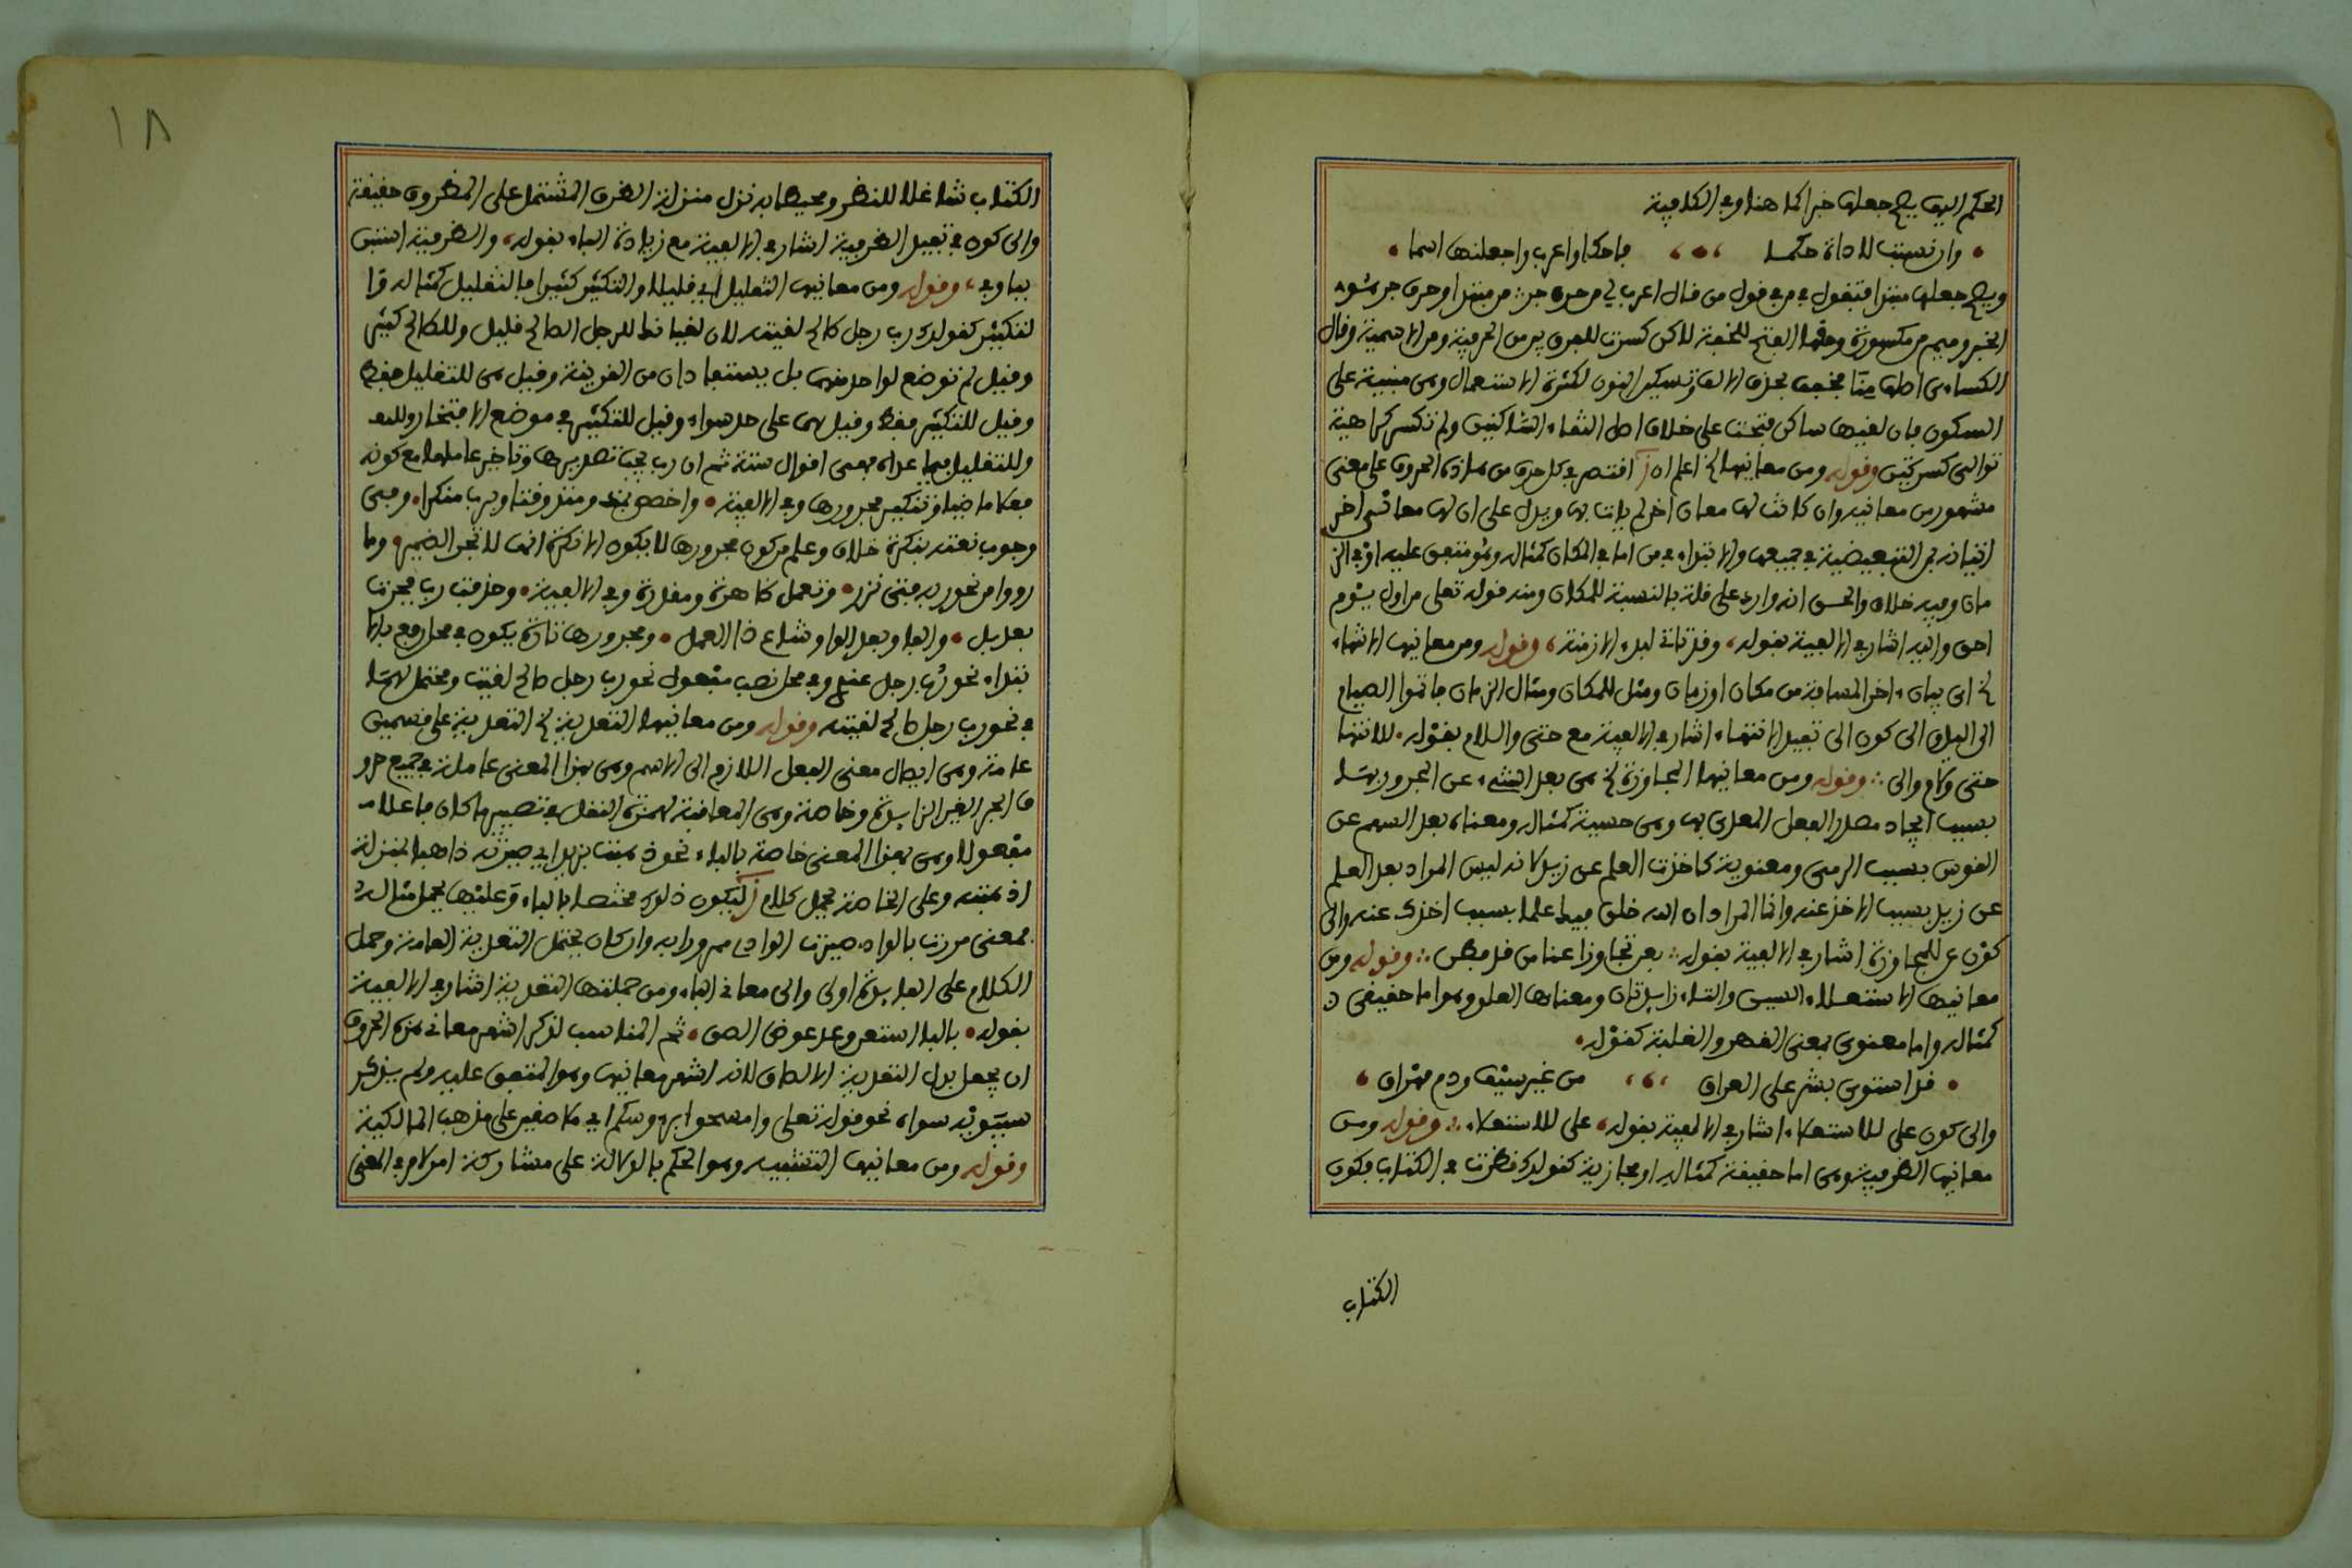 الحكم اليها يصح جعلها خبرا كما هنا وفي الكافية
وان نسبت لاداة حكما فاحك او اعرب واجعلنها اسما
ويصح جعلها مبتدا فتقول في من في قول من قال اعرب لي من حرف جر من مبتدا او حرف جر
الخبر وميم من مكسورة وحقها الفتح للخفة لاكن كسرت للفرق بين من الحرفية ومن الاسمية وقال
الكساءي اصلها منا مخفف بحذف الالف وتسكين النون لكثرة الاستعمال وهي مبنية على
السكون فان لقيها ساكن فتحت على خلاف اصل التقاء الساكنين ولم تكسر كراهية
توالي كسرتين وقوله ومن معانيها الخ اعلم ان اقتصر في كل حرف من هذه الحروف على معنى
مشهور من معانيه وان كانت لها معان اخر لم يات بها ويدل على ان لها معاني اخر
اتيانه بمن التبعيضية في جميعها والابتداء في من اما في المكان كمثاله وهو متفق عليه او في الز
مان وفيه خلاف والحق انه وارد على قلة بالنسبة للمكان ومنه قوله تعلى من اول يوم
احق واليه اشار في الالفية بقوله وقد تاتي لبدء الازمنة وقوله ومن معانيها الانتهاء
الخ اي بيان اخر المسافة من مكان او زمان ومثل للمكان ومثال الزمان ثم اتموا الصيام
الى اليل والى كون الى تفيد الانتهاء اشار في الالفية مع حتى واللام بقوله للانتها
حتى ولام والى وقوله ومن معانيها المجاوزة الخ هي بعد الشيء عن المجرور بها
بسبب ايجاد مصدر الفعل المعدى بها وهي حسية كمثاله ومعناه بعد السهم عن
القوس بسبب الرمي ومعنوية كاخذت العلم عن زيد لانه ليس المراد بعد العلم
عن زيد بسبب الاخذ عنه وانما المراد ان الله خلق فيك علما بسبب اخذك عنه والى
كون عن للمجاوزة اشار في الالفية بقوله بعن تجاوزا عنا من قد فطن وقوله ومن
معانيها الاستعلاء السين والتاء زايدتان ومعناها العلو وهو اما حقيقي
كمثاله واما معنوي بمعنى القهر والغلبة كقوله
قد استوى بشر على العراق من غير سيف ودم مهراق
والى كون على للاستعلاء اشار في الالفية بقوله على للاستعلاء وقوله ومن
معانيها الظرفية وهي اما حقيقة كمثاله او مجازية كقولك نظرت في الكتاب فكون
الكتاب
١٨
الكتاب شاغلا للنظر ومحيطا به نزل منزلة الظرف المشتمل على المظروف حقيقة
والى كون في تفيد الظرفية اشار في الالفية مع زيادة الباء بقوله والظرفية استبن
ببا وفي وقوله ومن معانيها التقليل اي قليلا والتكثير كثيرا فالتقليل كمثاله
لتكثير كقولك رب رجل صالح لقيته لان لقياك للرجل الصالح قليل وللطالح كثير
وقيل لم توضع لواحد منهما بل يستفادان من القرينة وقيل هي للتقليل فقط
وقيل للتكثير فقط وقيل لهما على حد سواء وقيل للتكثير في موضع الافتخار
وللتقليل فيما عداه فهي اقوال ستة ثم ان رب يجب تصديرها وتاخير عاملها مع كونه
فعلا ماضيا وتنكير مجرورها وفي الالفية واخصص بمذ ومنذ وقتا وبرب منكرا وفي
وجوب نعته بنكرة خلاف وعلم من كون مجرورها لا يكون الا نكرة انها لا تجر الضمير وما
رووا من نحو ربه فتى نزر وتعمل ظاهرة ومقدرة وفي الالفية وحذفت رب فجرت
بعد بل والفا وبعد الواو شاع ذا العمل ومجرورها تارة يكون في محل رفع بالا
بتداء نحو رب رجل عندي وفي محل نصب مفعول نحو رب رجل صالح لقيت ومحتمل لهما
في نحو رب رجل صالح لقيته وقوله ومن معانيها التعدية الخ التعدية على قسمين
عامة وهي ايصال معنى الفعل اللازم الى الاسم وهي بهذا المعنى عاملة في جميع حرو
ف الجر الغير الزايدة وخاصة وهي المعاقبة لهمزة النقل في تصيير ما كان فاعلا
مفعولا وهي بهذا المعنى خاصة بالباء نحو ذهبت بزيد اي صيرته ذاهبا بمنزلة
اذهبته وعلى الخاصة يحمل كلام ليكون ذلك مختصا بالباء وعليها يحمل مثاله
فمعنى مررت بالوادي صيرت الوادي ممرورا به وان كان يحتمل التعدية العامة وحمل
الكلام على الفايدة اولى والى معاني الباء ومن جملتها التعدية اشار في الالفية
بقوله بالبا استعن وعد عوض الصق ثم المناسب لذكر اشهر معاني هذه الحروف
ان يجعل بدل التعدية الالصاق لانه اشهر معانيها وهو المتفق عليه ولم يذكر
سيبويه سواه نحو قوله تعلى وامسحوا برءوسكم اي ملاصقين على مذهب المالكية
وقوله ومن معانيها التشبيه وهو الحكم بالدلالة على مشاركة امر لامر في المعنى